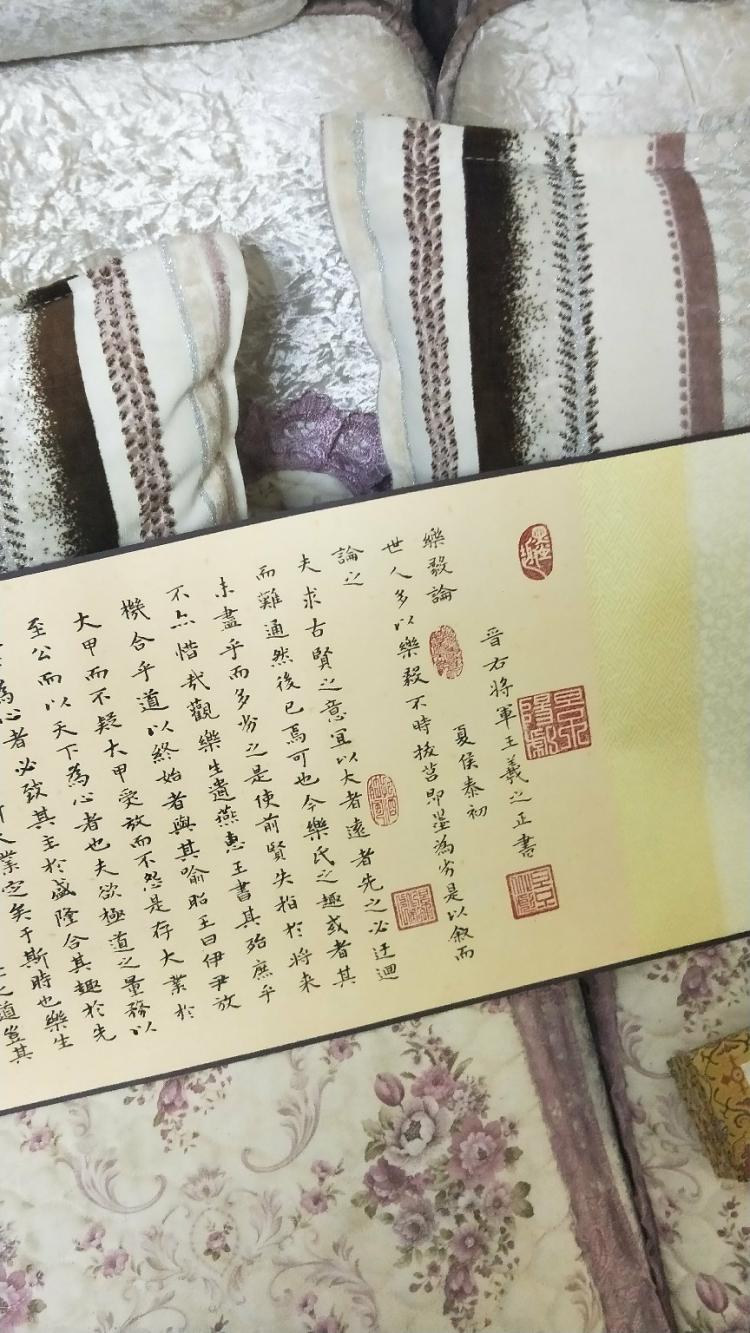 晉右將軍王羲之正書
樂毅論 夏侯泰初
世人多以樂毅不時拔莒即墨為劣是以叙而
論之
夫求古賢之意宜以大者遠者先之必迂迴
而難通然後已焉可也今樂氏之趣或者其
未盡乎而多劣之是使前賢失指於将来
不亦惜哉觀樂生遺燕惠王書其殆庶乎
機合乎道以終始者與其喻昭王曰伊尹放
大甲而不疑大甲受放而不怨是存大業於
至公而以天下為心者也夫欲極道之量務以
為心者必致其主於盛隆合其趣於先
業定矣于斯時也樂生
之道豈其